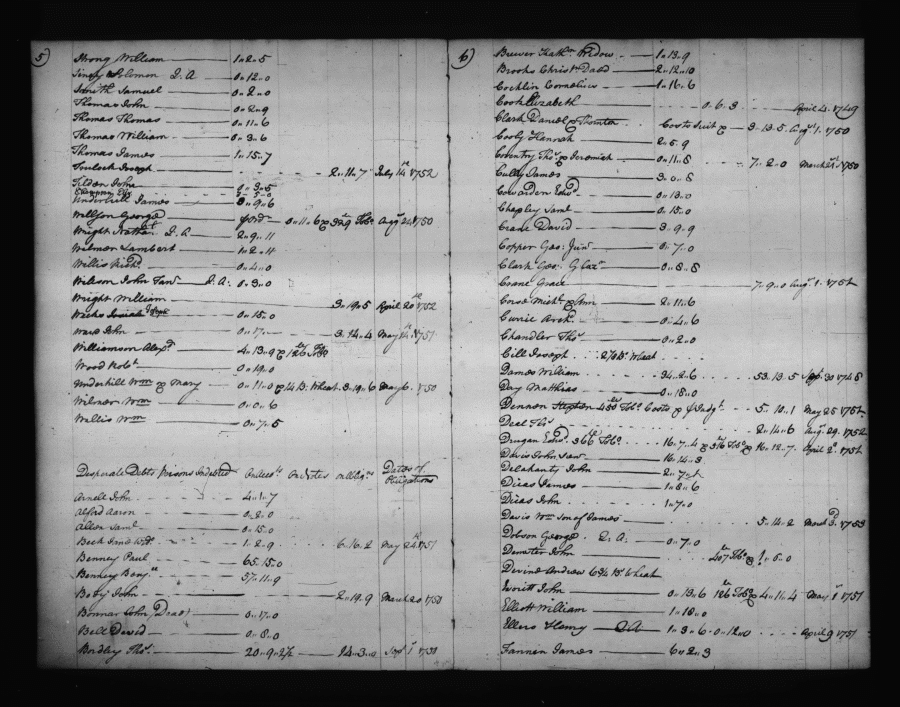 5)
Strong William 1..2..5
Sincy Solomon D. A 0..12..0
Smith Samuel 0..2..0
Thomas John 0..2..9
Thomas Thomas 0..11..6
Thomas William 0..3..6
Thomas James 1..15..7
Joseph 2..11..7 July 14 1752
Tilden John 0..3..5
Underhill James 0..9..6
Wellson George 0..11..6 & 329 Tobo Augt 1750
Wright Nathal. D. A 2..9..11
Wilmer Lambert 1..2..4
Willis Richd. 0..4..0
Wilson John D. A: 0..3..0
Wright William 3..19..5 April 20 1752
Weeks 0..15..0
Ward John 3..14..4 May 1751
Williamson Alexr. 4..13..9 & 126 Tobo
Wood Robt. 0..19..0
Underhill Wm & Mary 0..11..0 & 14 B. Wheat 3..19..6 May 6. 1750
Wilmer Wm 0..0..6
Wallis Wm 0..7..5
Desperate Debts Persons Indebted on Notes on Obligns Dates of Obligations
Arnell John 4..1..7
Alford Aaron 0..2..0
Allen Saml 0..15..0
Beck 1..2..9 6..16..2 May 24 1751
Benney Paul 65..15..0
Benney Benjn 57..11..9
Body John 2..19..9 March 20 1750
Bonnar John, Dead 0..17..0
Bell David 0..8..0
Bordley Thos. 20..9..2½ 14..3..0 Sept 1 1731
6)
Brewer Kathn. Widow 1..13..9
Brooks Christn. Dead 2..12..10
Cochlin Cornelius 1..16..6
Cook Elizabeth 0..6..3 April 4. 1749
Clark Daniel & Thornton Costs Suit & 3..13..5 Augt 1. 1750
Cooly Hannah 2..5..9
Coventry Thos. & Jeremiah 0..11..5 7..2..0 March 21 1750
Cully James 3..0..8
Cowarden Edwd. 0..13..0
Chapley Saml 0..15..0
Crane David 3..9..9
Copper Geo: Junr 0..7..0
Clark Geo: Glazr 0..8..8
Crane Grace 7..9..0 Augt 1. 1752
Crose Michl. & Ann 2..11..6
Currie Archd. 0..4..6
Chandler Thos 0..2..0
Cill Joseph 2½ B. Wheat
Dames William 34..2..6 53..13..5 Sept. 30 1748
Day Matthias 0..18..0
Dennan Stephen 480 Tobo. Costs & Judgt. 5..10..1 May 25 1752
Deal Thos 2..14..6 Augt 29. 1752
Drugan Edwd. 366 Tobo. 16..7..4 & 316 Tobo & 16..12..7. April 2. 1752
Davis John 16..14..3
Delahanty John
Dicas James 1..8..6
Dicas John 1..7..0
Davis Wm Son of James 5..14..2 March 3. 1753
Dobson George D. A: 0..7..0
Demster John 407 Tobo & 1..5..0
Devine Andrew 6¾ B. Wheat
Everitt John 0..13..6 126 Tobo & 4..11..4 May 1 1751
Elliott William 1..18..0
Ellers Henry D A 1..3..6 0..12..0 April 9 1751
Fannen James 6..2..3